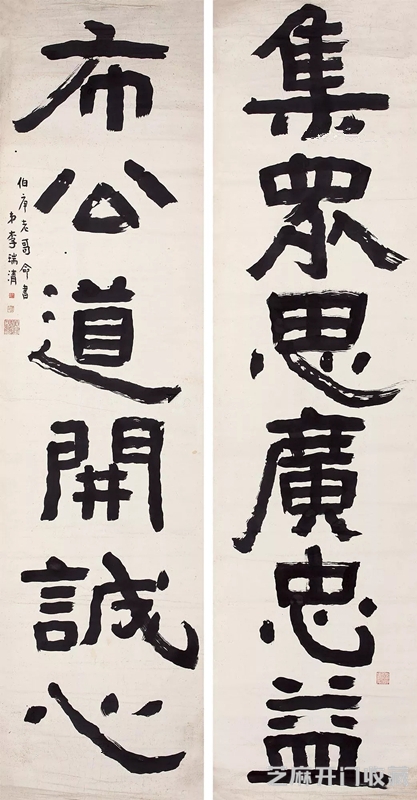 集眾思廣忠益
布公道開誠心
伯庚老哥命書
弟李瑞清
芝麻开门收藏